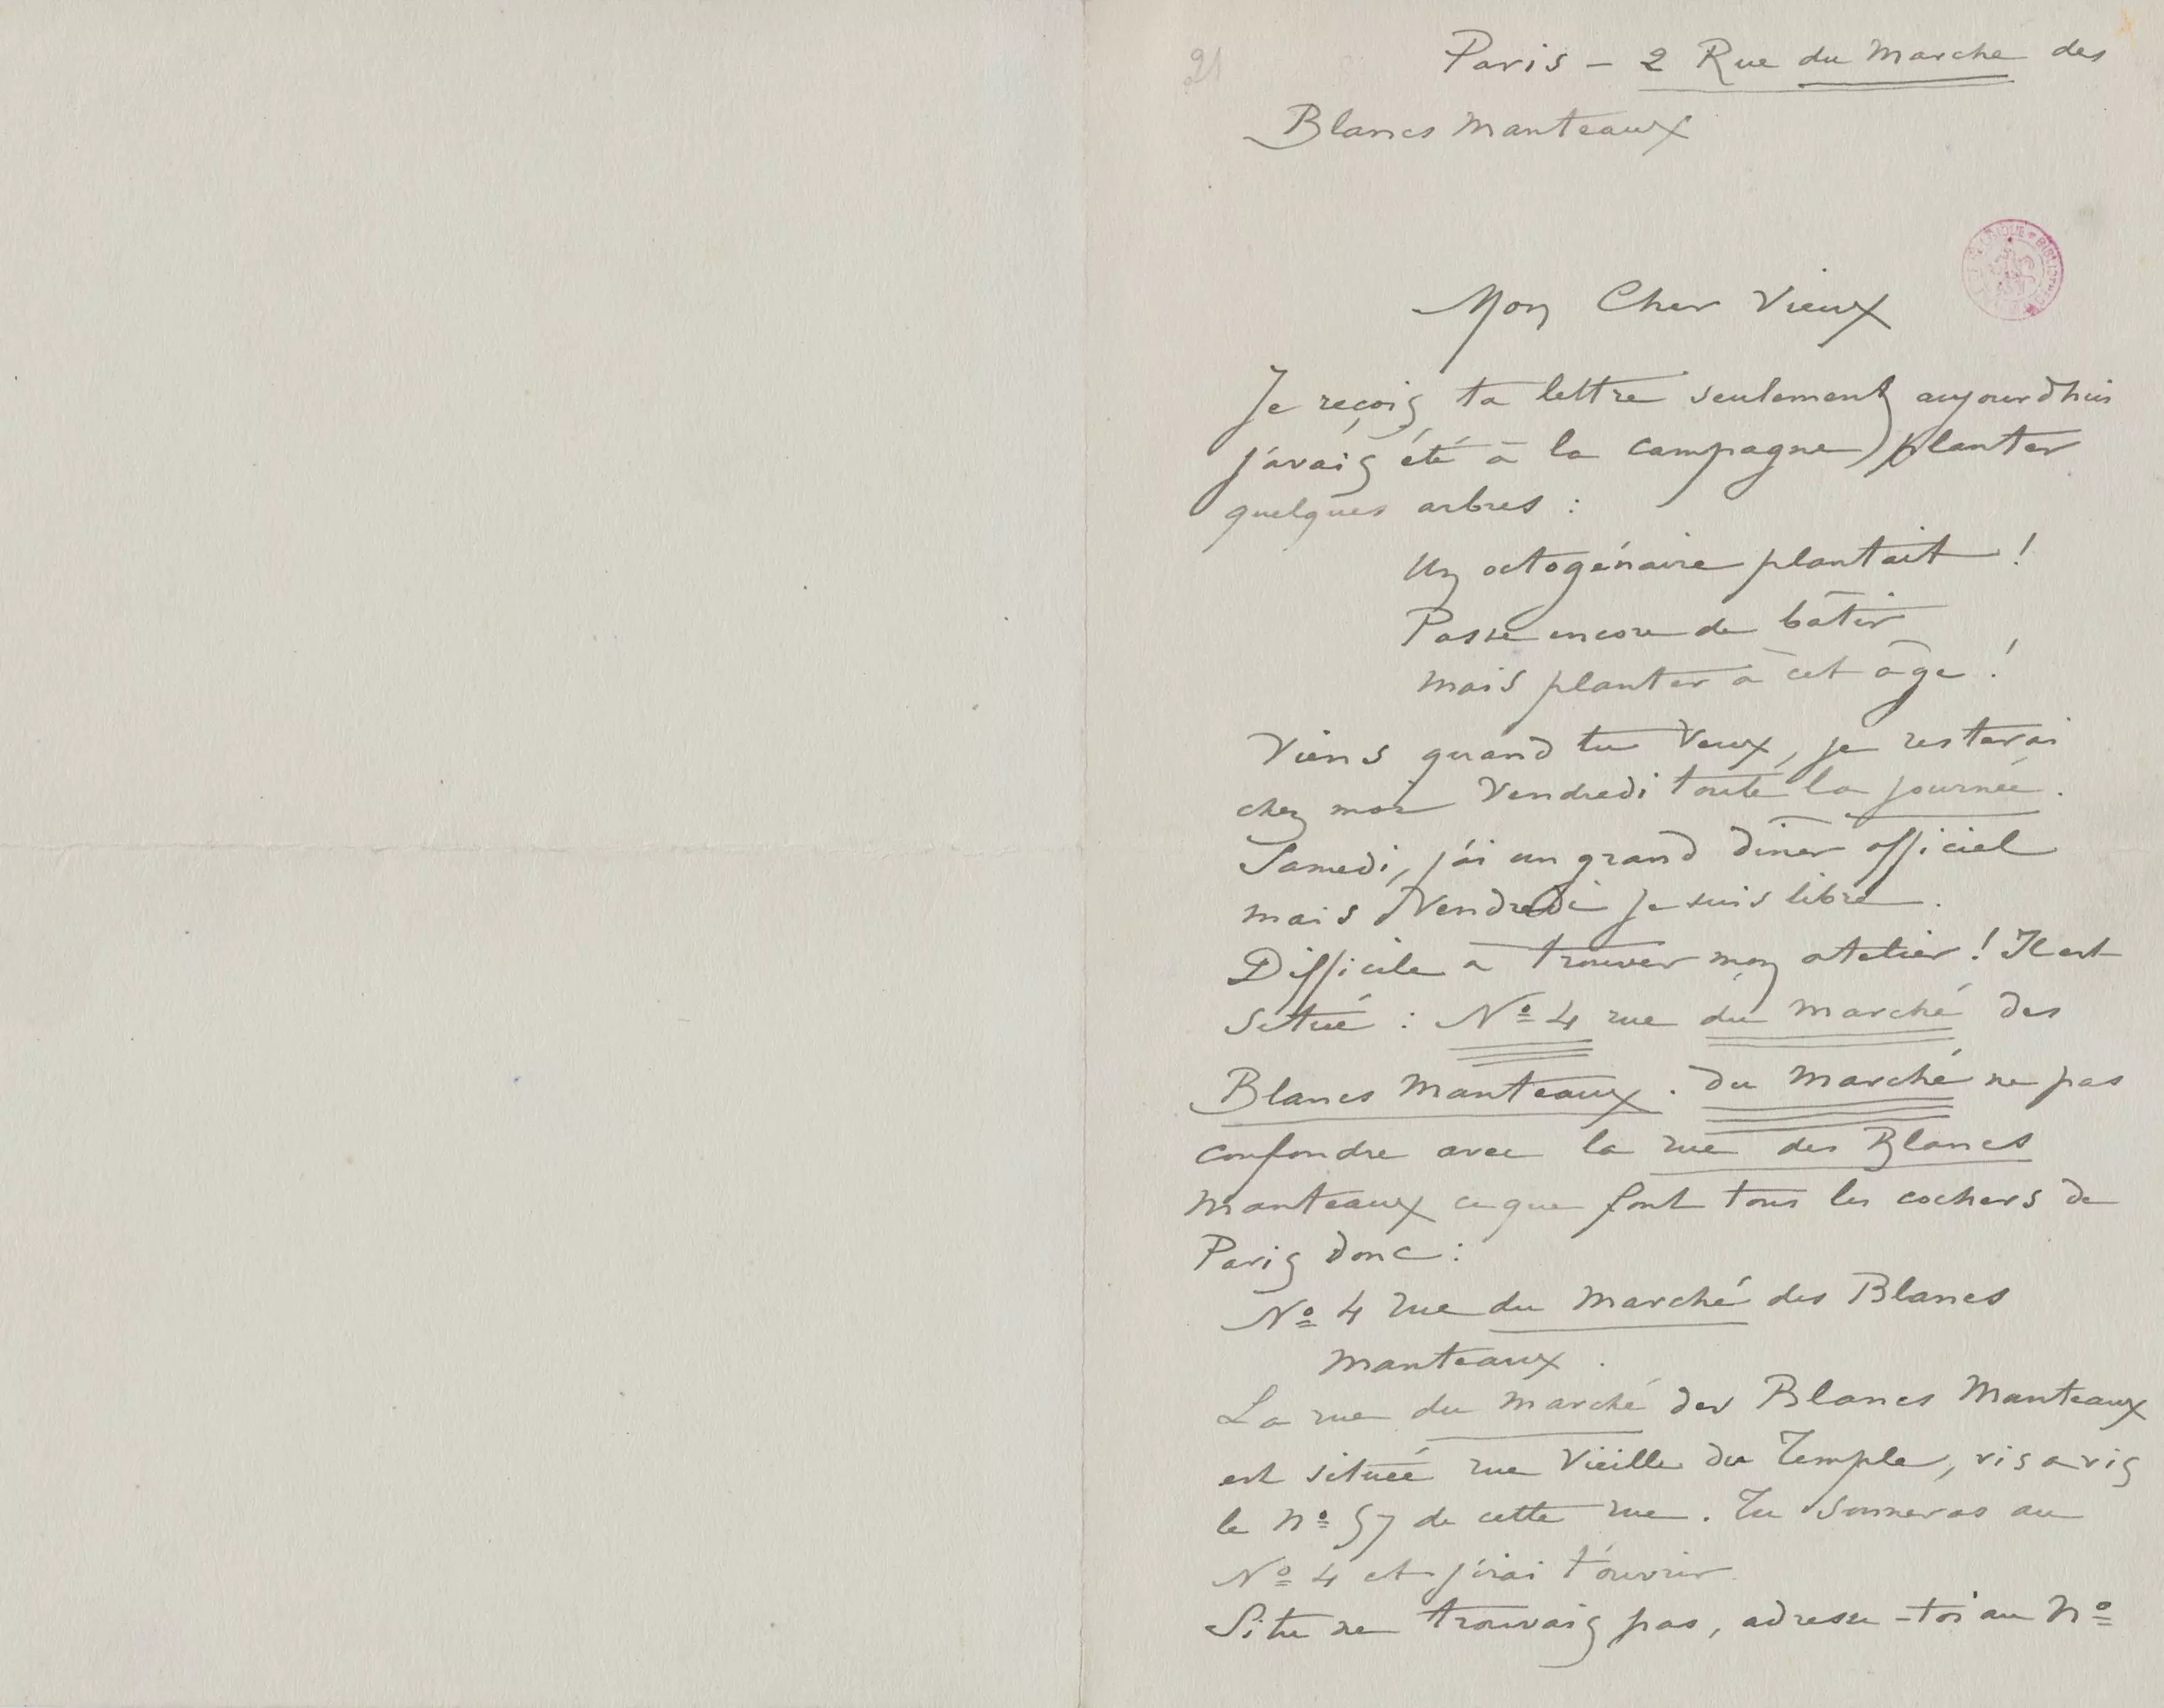 21
Paris - 2 Rue du Marché des
Blancs Manteaux
Mon Cher Vieux
Je reçois ta lettre seulement aujourd'hui
j'avais été à la campagne planter
quelques arbres :
Un octogénaire plantait !
Passe encore de bâtir
Mais planter à cet âge !
Viens quand tu veux, je resterai
chez moi Vendredi toute la journée.
Samedi, j'ai un grand dîner officiel
mais Vendredi je suis libre.
Difficile à trouver mon atelier ! Il est
situé : No 4 rue du Marché des
Blancs Manteaux. du Marché ne pas
confondre avec la rue des Blancs
Manteaux ce que font tous les cochers de
Paris donc :
No 4 rue du Marché des Blancs
Manteaux.
La rue du Marché des Blancs Manteaux
est située rue Vieille du Temple, vis a vis
le No 57 de cette rue. Tu sonneras au
No 4 et j'irai t'ouvrir
Si tu ne trouvais pas, adresse-toi au No